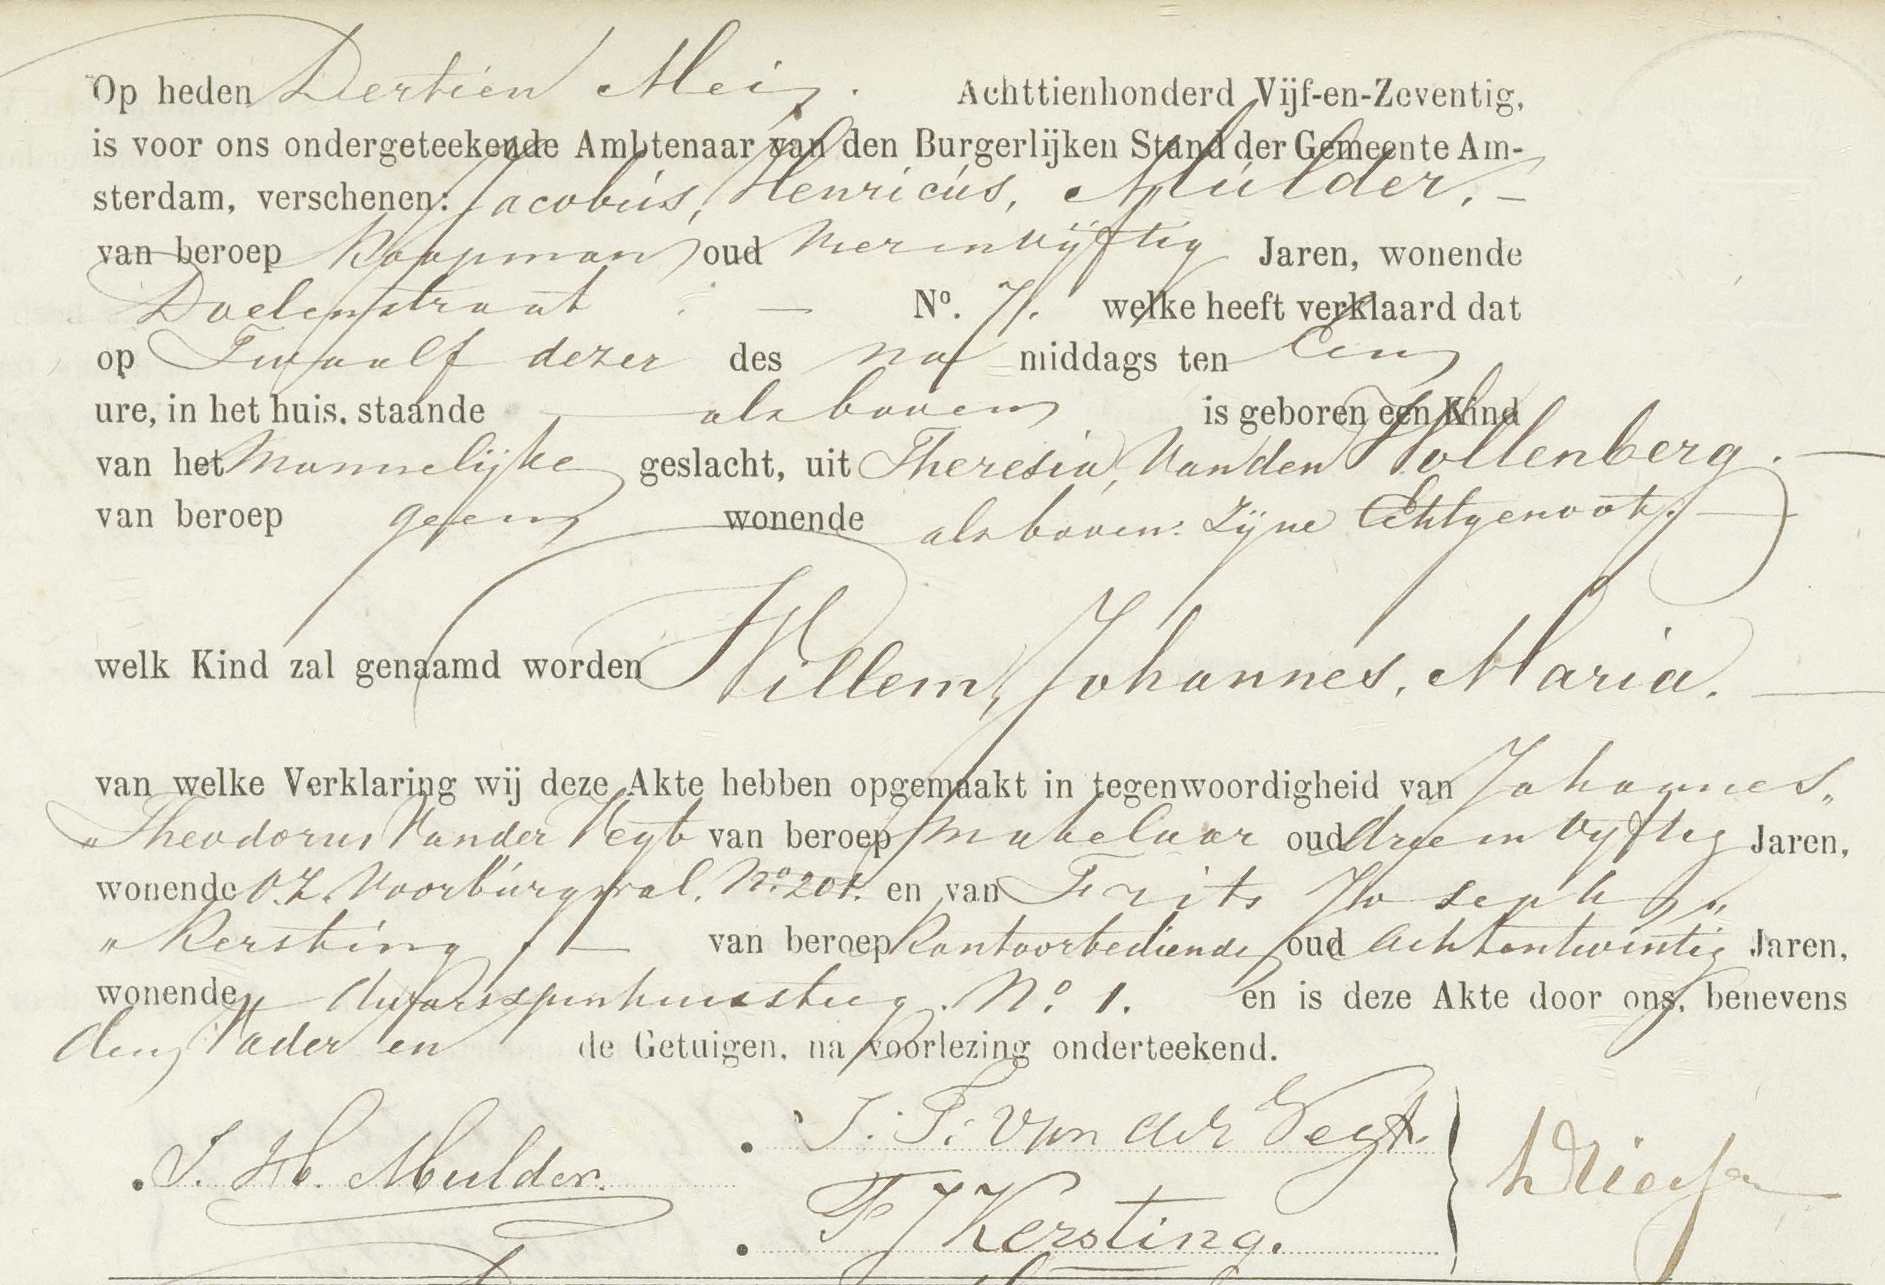 Op heden Dertien Mei. Achttienhonderd Vijf-en-Zeventig,
is voor ons ondergeteekende Ambtenaar van den Burgerlijken Stand der Gemeente Am-
sterdam, verschenen: Jacobus, Henricus, Mulder. –
van beroep Koopman oud Vierenvijftig Jaren, wonende
Doelenstraat — Nº. 7. welke heeft verklaard dat
op Twaalf dezer des na middags ten Een
ure, in het huis, staande — als boven is geboren een Kind
van het Mannelijke geslacht, uit Theresia, Van den Wollenberg. —
van beroep geen wonende als boven: Zijne Echtgenoote. —
welk Kind zal genaamd worden Willem, Johannes, Maria. —
van welke Verklaring wij deze Akte hebben opgemaakt in tegenwoordigheid van Johannes „
„ Theodorus Van der Vegt van beroep Makelaar oud drie en vyftig Jaren,
wonende O.Z. Voorburgwal. Nº. 201. en van Frits Joseph „
„ Kersting. — van beroep Kantoorbediende oud achtentwintig Jaren,
wonende dwarsspinhuissteeg. Nº. 1. en is deze Akte door ons, benevens
den Vader en de Getuigen, na voorlezing onderteekend.
J. H. Mulder.
J. T. van der Vegt.
F J Kersting.